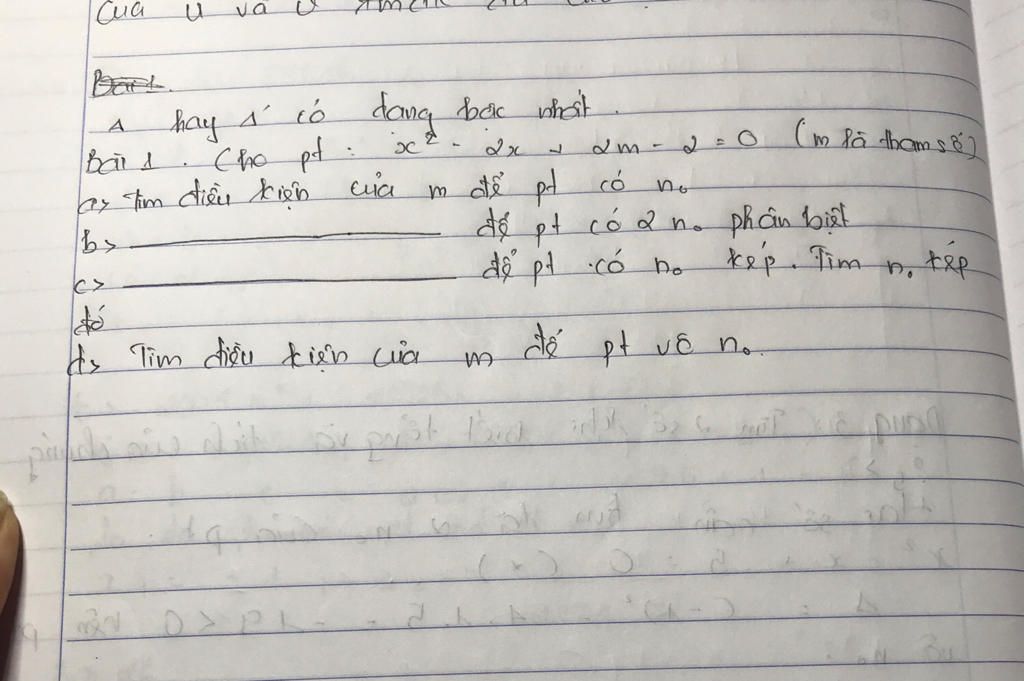 của u và v
Bài 1.
Δ hay Δ' có dạng bậc nhất.
Bài 1. Cho pt: x² - 2x + 2m - 2 = 0 (m là tham số)
a> Tìm điều kiện của m để pt có n₀
b> ________ để pt có 2 n₀ phân biệt
c> ________ để pt có n₀ kép. Tìm n₀ kép
đó
d> Tìm điều kiện của m để pt vô n₀.